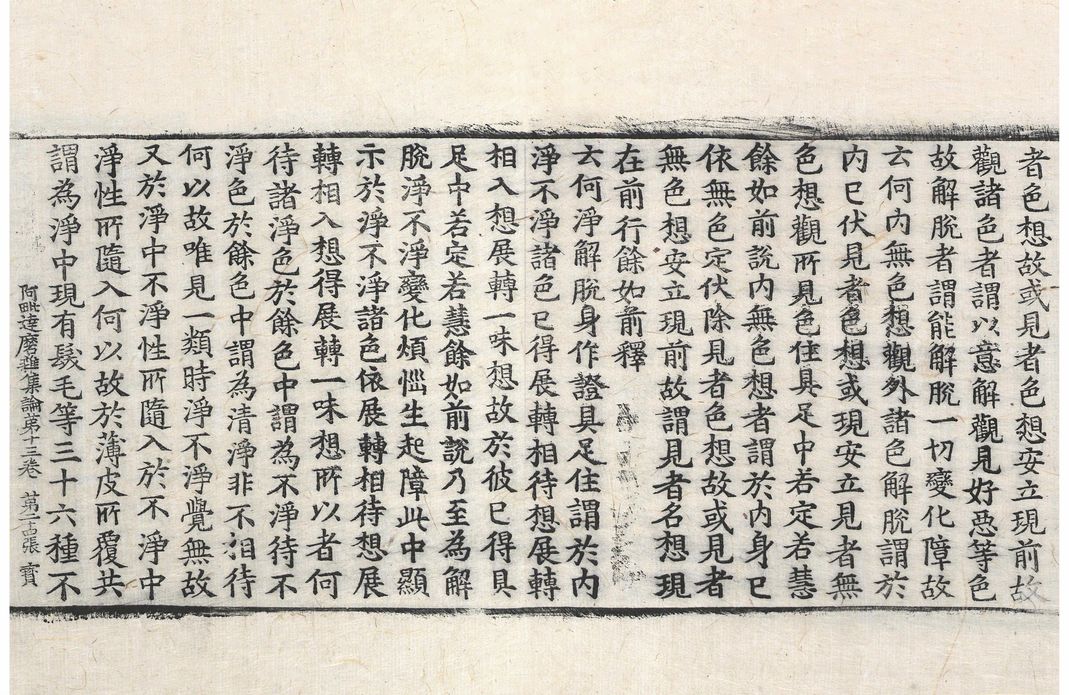 者色想故或見者色想安立現前故
觀諸色者謂以意解觀見好惡等色
故解脫者謂能解脫一切變化障故
云何內無色想觀外諸色解脫謂於
內已伏見者色想或現安立見者無
色想觀所見色住具足中若定若慧
餘如前說內無色想者謂於內身已
依無色定伏除見者色想故或見者
無色想安立現前故謂見者名想現
在前行餘如前釋
云何淨解脫身作證具足住謂於內
淨不淨諸色已得展轉相待想展轉
相入想展轉一味想故於彼已得具
足中若定若慧餘如前說乃至為解
脫淨不淨變化煩惱生起障此中顯
示於淨不淨諸色依展轉相待想展
轉相入想得展轉一味想所以者何
待諸淨色於餘色中謂為不淨待不
淨色於餘色中謂為清淨非不相待
何以故唯見一類時淨不淨覺無故
又於淨中不淨性所隨入於不淨中
淨性所隨入何以故於薄皮所覆共
謂為淨中現有髮毛等三十六種不
阿毗達磨雜集論第十三卷